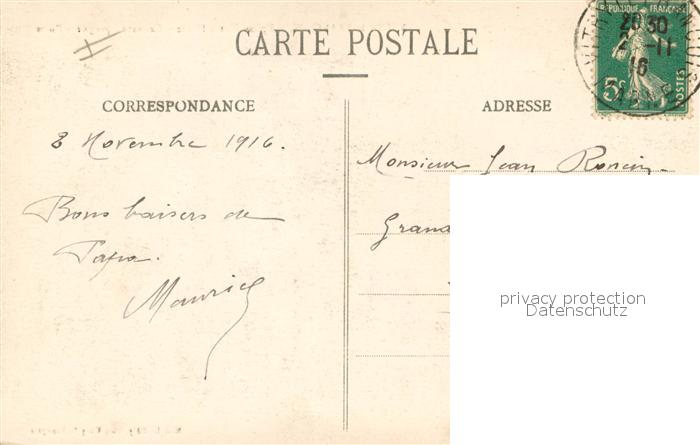 CARTE POSTALE
CORRESPONDANCE
8 Novembre 1916.
Bons baisers de
Papa.
Maurice
ADRESSE
Monsieur Jean
Grand
privacy protection
Datenschutz
REPUBLIQUE FRANÇAISE
5c
POSTES
20 30
2 -11
16
MARNE